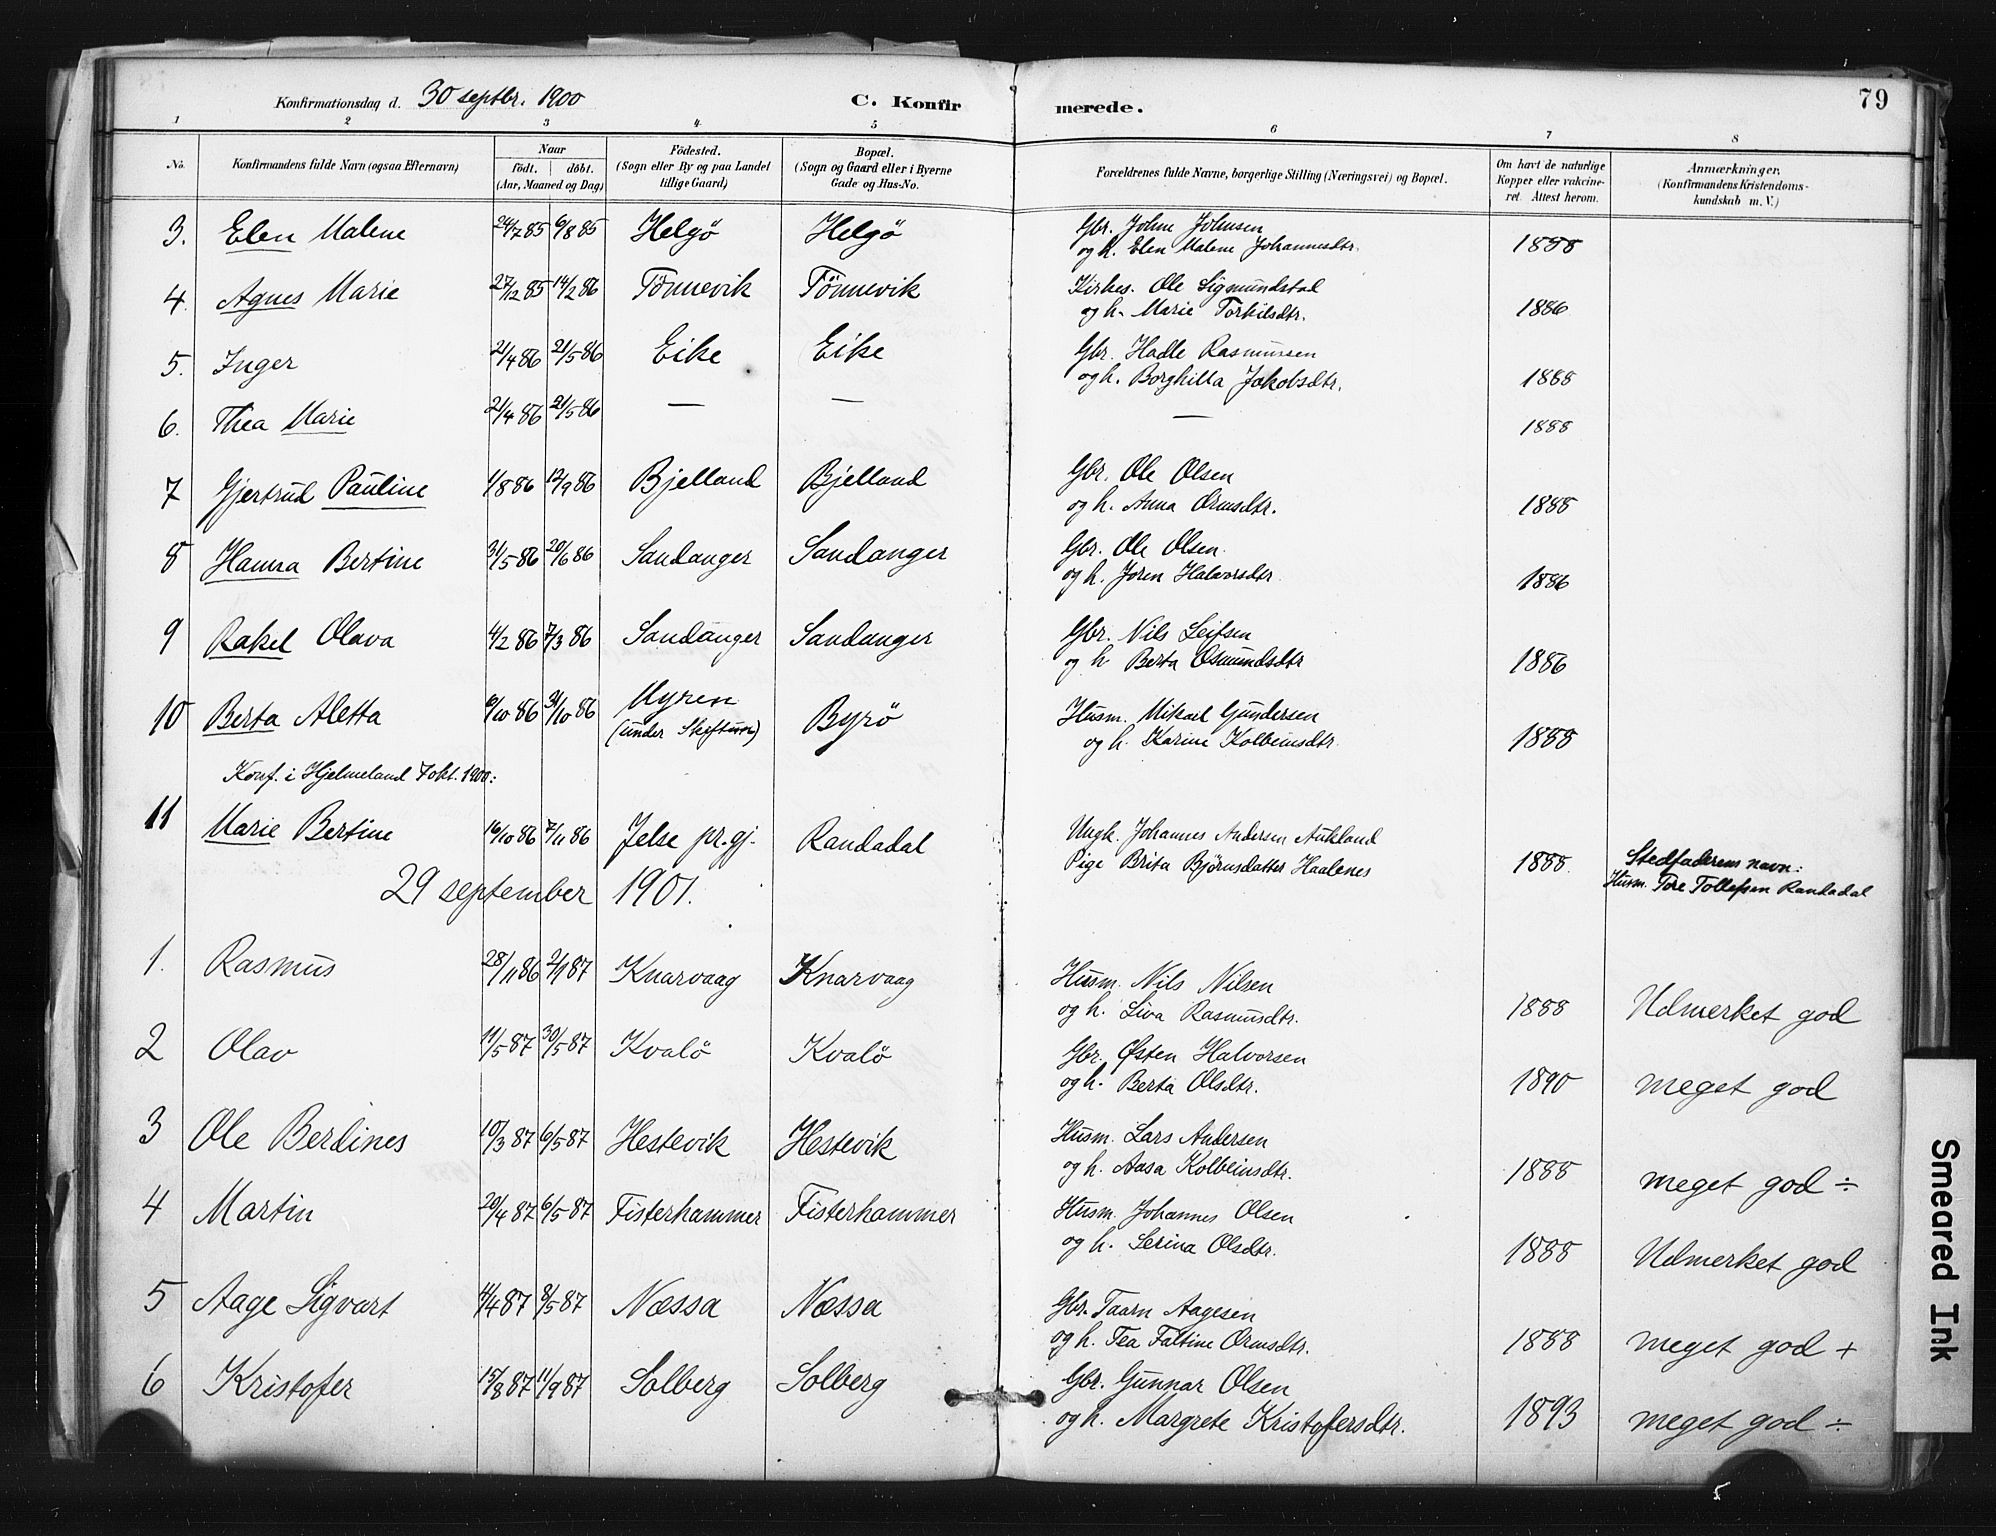 Konfirmationsdag d. 30 septbr. 1900 C. Konfirmerede. 79
1 2 3 4 5 6 7 8
No. Konfirmandens fulde Navn (ogsaa Efternavn) Naar födt. döbt. (Aar, Maaned og Dag) Födested. (Sogn eller By og paa Landet tillige Gaard) Bopæl. (Sogn og Gaard eller i Byerne Gade og Hus-No. Forældrenes fulde Navne, borgerlige Stilling (Næringsvei) og Bopæl. Om havt de naturlige Kopper eller vakcineret. Attest herom. Anmærkninger. (Konfirmandens Kristendomskundskab m. V.)
3. Elen Malene 24/7 85 6/8 85 Helgö Helgö Gbr. Johne Johnsen
og h. Elen Malene Johannesdtr. 1888
4. Agnes Marie 27/12 85 14/2 86 Tönnevik Tönnevik Kirkes. Ole Sigmundstad
og h. Marie Torkilsdtr. 1886
5. Inger 21/4 86 21/5 86 Eike Eike Gbr. Hadle Rasmussen
og h. Borghilla Jakobsdtr. 1888
6. Thea Marie 21/4 86 21/5 86 — — — 1888
7 Gjertrud Pauline 1/8 86 12/9 86 Bjelland Bjelland Gbr. Ole Olsen
og h. Anna Ormsdtr. 1888
8 Hanna Bertine 31/5 86 20/6 86 Sandanger Sandanger Gbr. Ole Olsen
og h. Joren Halvorsdtr 1886
9 Rakel Olava 4/2 86 7/3 86 Sandanger Sandanger Gbr. Nils Leifsen
og h Berta Osmundsdtr 1886
10 Berta Aletta 6/10 86 31/10 86 Myren (under Skiftun) Byrö Husm. Mikael Gundersen
og h. Karine Kolbeinsdtr. 1888
Konf. i Hjelmeland 7 okt. 1900:
11 Marie Bertine 16/10 86 7/11 86 Jelse pr.gj. Randadal Ungk. Johannes Andersen Aukland
Pige Brita Bjørnsdatter Haalenes 1888. Stedfaderens navn:
Husm. Tore Tollefsen Randadal
29 september 1901.
1. Rasmus 28/11 86 2/1 87 Knarvaag Knarvaag Husm. Nils Nilsen
og h. Liva Rasmusdtr. 1888 Udmerket god
2 Olav 11/5 87 30/5 87 Kvalö Kvalö Gbr. Østen Halvorsen
og h. Berta Olsdtr. 1890 meget god
3 Ole Berdines 10/3 87 6/5 87 Hestevik Hestevik Husm. Lars Andersen
og h. Aasa Kolbeinsdtr. 1888 meget god ÷
4 Martin 20/4 87 6/5 87 Fisterhammer Fisterhammer Husm. Johannes Olsen
og h. Serina Olsdtr. 1888 Udmerket god
5 Aage Sigvart 14/4 87 8/5 87 Næssa Næssa Gbr. Taarn Aagesen
og h. Tea Faltine Ormsdtr. 1888 meget god +
6 Kristofer 15/8 87 11/9 87 Solberg Solberg Gbr. Gunnar Olsen
og h. Margrete Kristofersdtr. 1893 meget god ÷
Smeared Ink